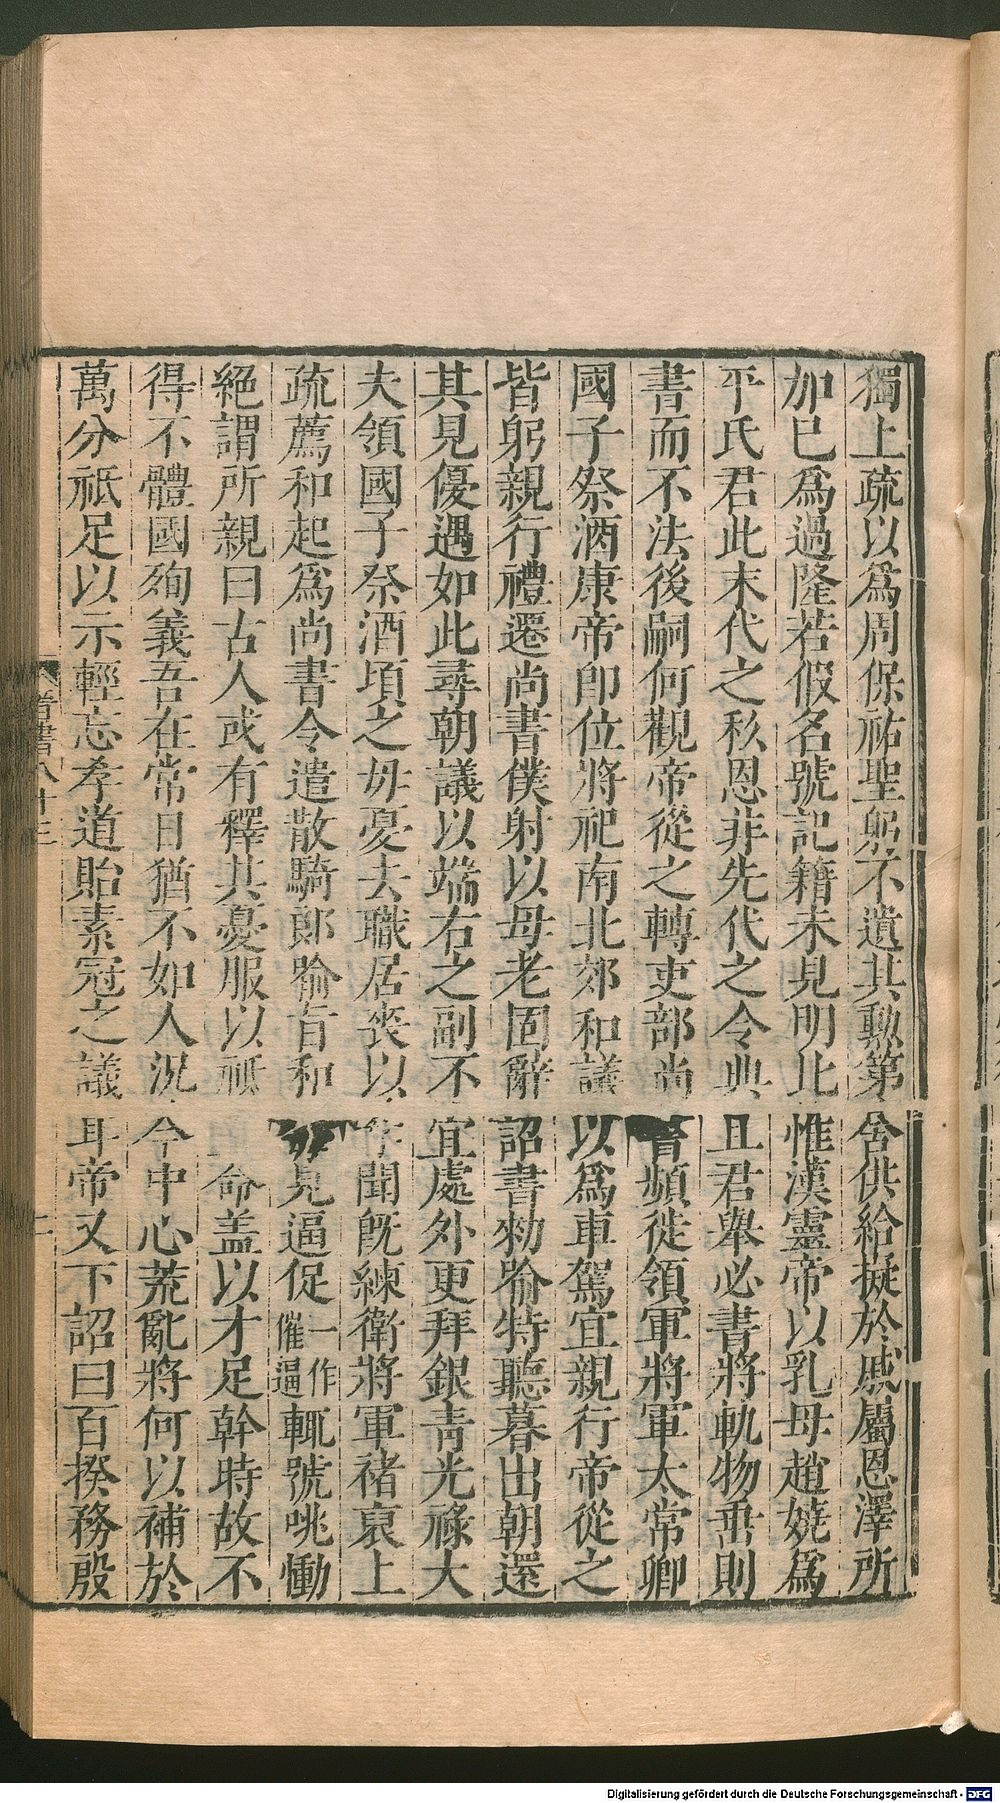 獨上疏以爲周保祐聖躬不遺其勲第舍供給擬於戚屬恩澤所
加已爲過隆若假名號記籍未見明比惟漢靈帝以乳母趙嬈爲
平氏君此末代之私恩非先代之令典且君舉必書將軌物垂則
書而不法後嗣何觀帝從之轉吏部尚書頻徙領軍將軍太常卿
國子祭酒康帝卽位將祀南北郊和議以爲車駕宜親行帝從之
皆躬親行禮遷尚書僕射以母老固辭詔書勑喻特聽暮出朝還
其見優遇如此尋朝議以端右之副不宜處外更拜銀靑光祿大
夫領國子祭酒頃之毋憂去職居喪以 聞旣練衛將軍褚裒上
疏薦和起爲尚書令遣散騎郎喻旨和 見逼促一作催逼輒號咷慟
絕謂所親曰古人或有釋其憂服以祗 命盖以才足幹時故不
得不體國殉義吾在常日猶不如人況今中心荒亂將何以補於
萬分祗足以示輕忘孝道貽素冠之議耳帝又下詔曰百揆務殷
晉書八十三
二
Digitalisierung gefördert durch die Deutsche Forschungsgemeinschaft - DFG